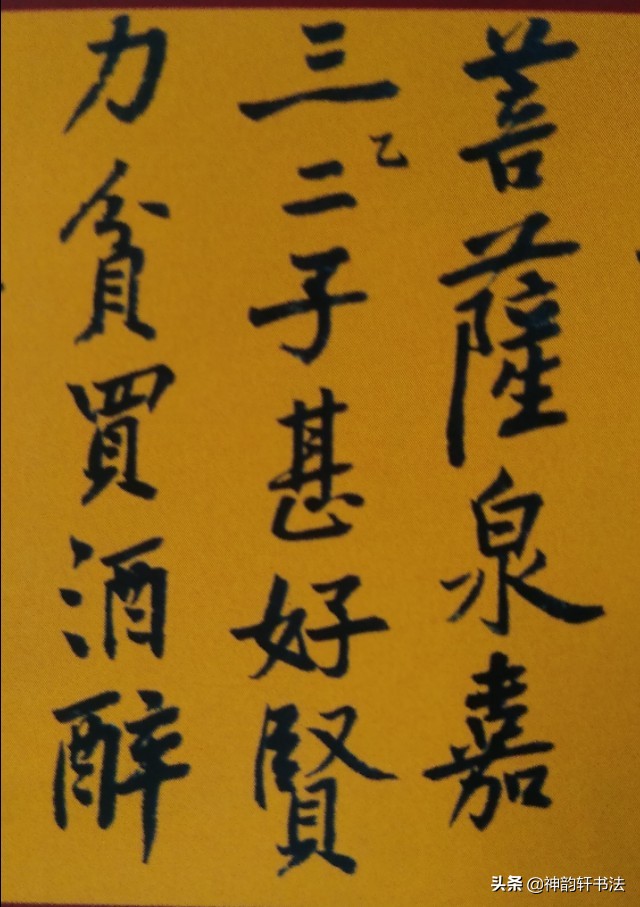 菩薩泉嘉
三乙二子甚好賢
力貧買酒醉
头条 @神韵轩书法